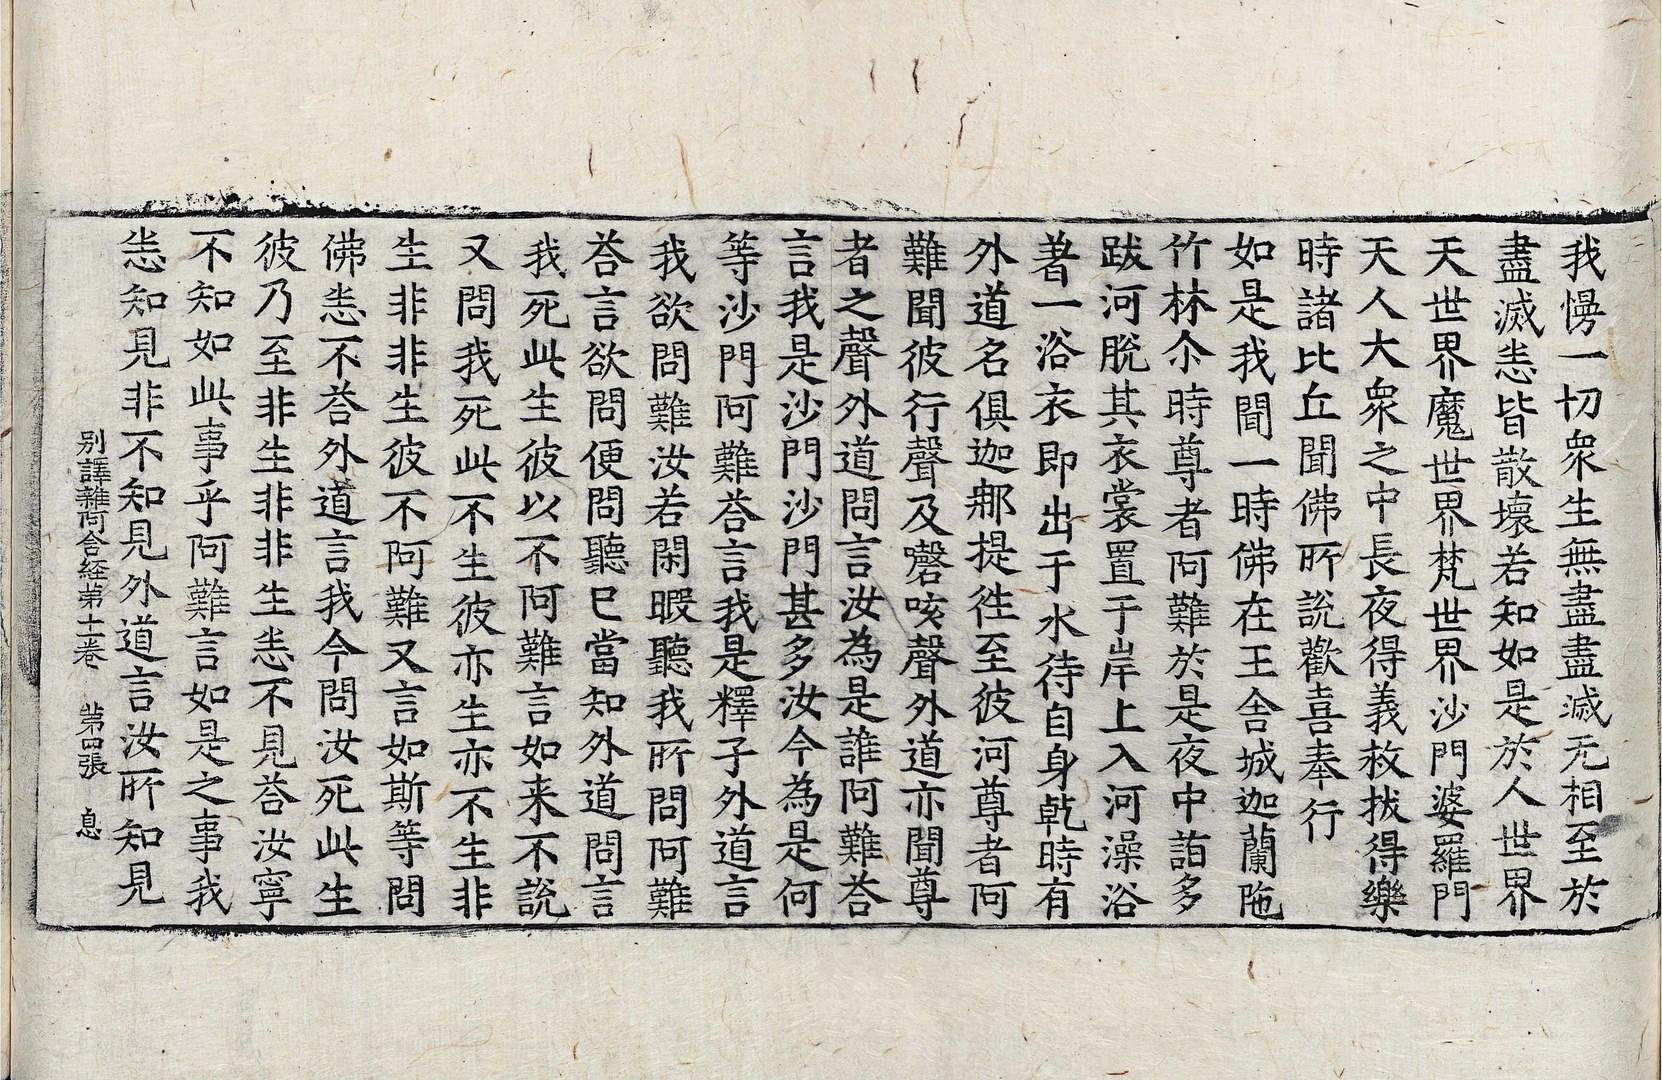 我慢一切衆生無盡盡滅无相至於
盡滅恚皆散壞若知如是於人世界
天世界魔世界梵世界沙門婆羅門
天人大衆之中長夜得義救拔得樂
時諸比丘聞佛所說歡喜奉行
如是我聞一時佛在王舍城迦蘭陁
竹林尒時尊者阿難於是夜中詣多
跋河脫其衣裳置于岸上入河澡浴
著一浴衣即出于水待自身乾時有
外道名俱迦那提往至彼河尊者阿
難聞彼行聲及謦咳聲外道亦聞尊
者之聲外道問言汝為是誰阿難荅
言我是沙門沙門甚多汝今為是何
等沙門阿難荅言我是釋子外道言
我欲問難汝若閑暇聽我所問阿難
荅言欲問便問聽已當知外道問言
我死此生彼以不阿難言如来不說
又問我死此不生彼亦生亦不生非
生非非生彼不阿難又言如斯等問
佛恚不荅外道言我今問汝死此生
彼乃至非生非非生恚不見荅汝寧
不知如此事乎阿難言如是之事我
恚知見非不知見外道言汝所知見
別譯雜阿含經第十一卷 第四張 息